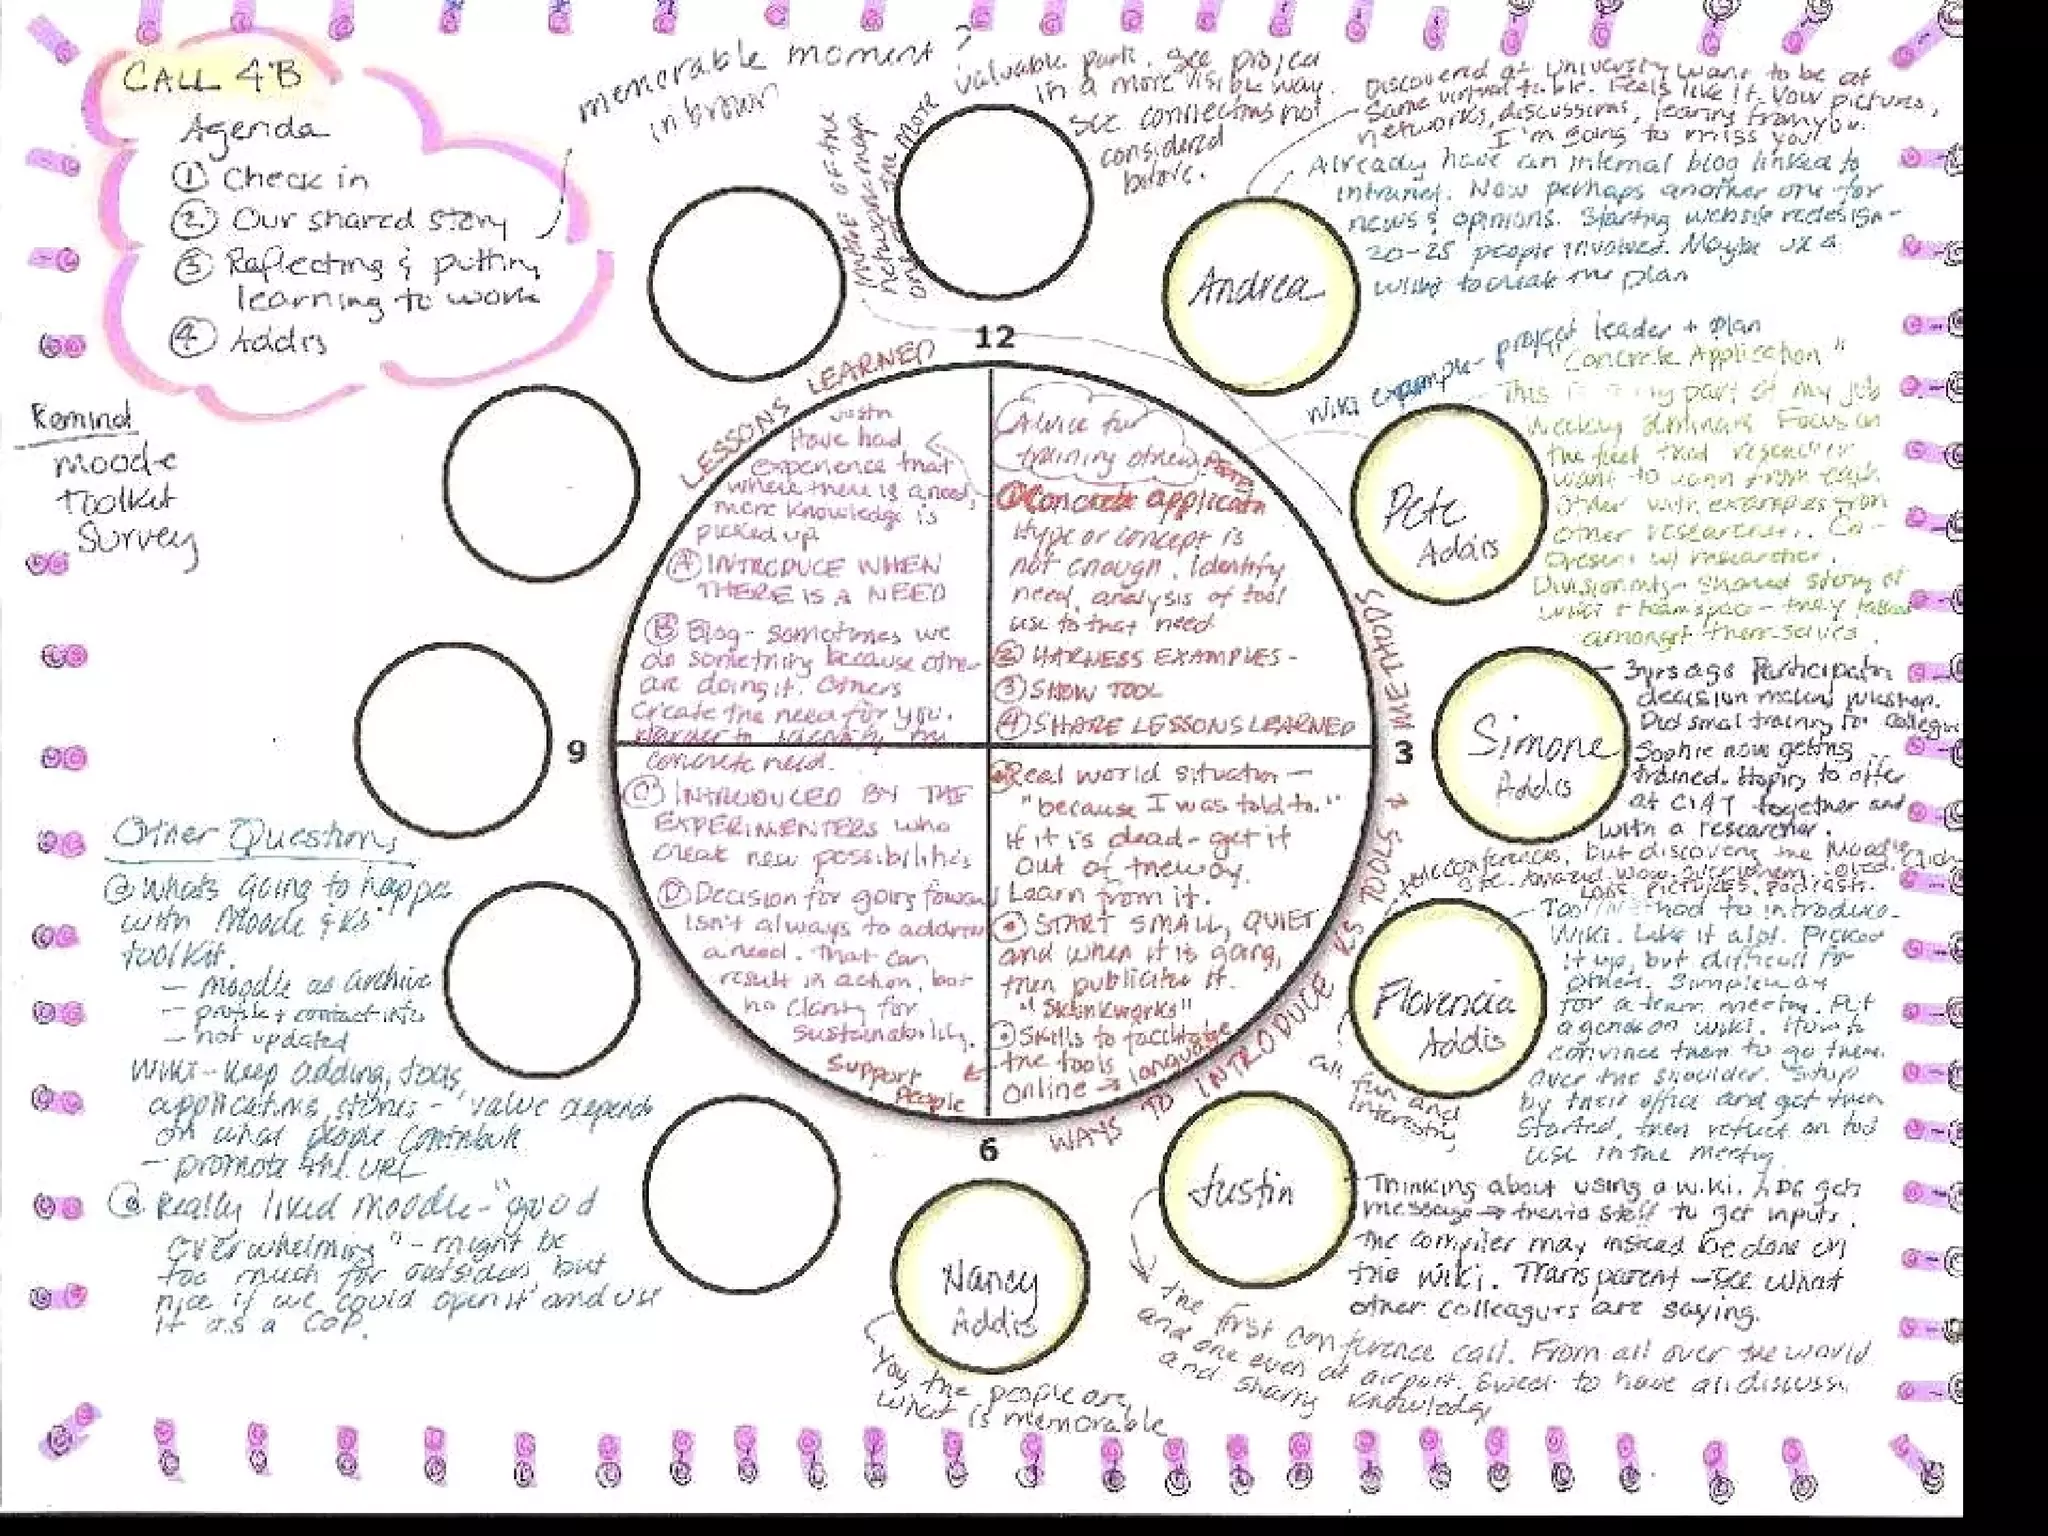 CALL 4B
Agenda
① Check in
② Our shared story
③ Reflecting & putting
learning to work
④ Addis
Remind
Moodle
Toolkit
Survey
memorable moment?
in brown
image of the
networking map
one of the more
valuable part. See project
in a more visible way.
See connections not
considered
before.
Andrea
Discovered at University want to be at
same virtual table. Feels like it. Vow pictures,
networks, discussions, learning from you.
I'm going to miss you.
Already have an internal blog linked to
intranet. Now perhaps another one for
news & opinions. Starting website redesign-
20-25 people involved. Maybe use a
wiki to create the plan
Wiki example - project leader + plan
"Concrete Application"
Pete
Addis
This is my part of my job
Weekly seminars Focus on
the fact that researcher
want to learn from each
other with examples from
other researchers. Co-
present w/ researcher.
shared story of
wiki + teamspace - they talked
amongst themselves.
Simone
Addis
3yrs ago Participatn
decision making workshop.
Did small training for colleagues
Sophie now getting
trained. Hoping to offer
at CIAT together and
with a researcher.
Teleconferences, but discovering the Moodle
site. Amazed wow
pictures, podcasts.
Florencia
Addis
all fun and
interesting
Tool/Method to introduce.
Wiki. Like it a lot. Picked
it up, but difficult for
others. Simple way
for a team meeting. Put
agenda on wiki. How to
convince them to go there.
over the shoulder. Stop
by their office and get them
started, then reflect on tool
use in the meeting.
Justin
Thinking about using a wiki. get
message → to staff to get inputs.
the compiler may instead be done on
the wiki. Transparent - see what
other colleagues are saying.
The first conference call. From all over the world
and one even at airport. Sweet to have all discussing
and sharing knowledge
Nancy
Addis
You, the people are,
what is memorable
12
3
6
9
LESSONS LEARNED
METHODS & STOOLS
WAYS TO INTRODUCE KS
Justin
Have had
experience that
where there is a need,
more knowledge is
picked up
Ⓐ INTRODUCE WHEN
THERE IS A NEED
Ⓑ Blog - sometimes we
do something because others
are doing it. Others
create the need for you.
Harder to identify the
concrete need.
Ⓒ INTRODUCED BY THE
EXPERIMENTERS who
create new possibilities
Ⓓ Decision for going forward
isn't always to address
a need. That can
result in action, but
no clarity for
sustainability.
Support
People
Advice for
training others
Pete
① Concrete applicatn
Hype or concept is
not enough. Identify
need, analysis of tool
use to that need
② HARNESS EXAMPLES -
③ SHOW TOOL
④ SHARE LESSONS LEARNED
Real world situation -
"because I was told to."
If it is dead - get it
out of the way.
Learn from it.
START SMALL, QUIET
and when it is going,
then publicize it.
"Skunkworks"
Skills to facilitate
the tools
online → language
Other Questions
What's going to happen
with Moodle & KS
toolkit.
- moodle as archive
- profile + contact info
- not updated
Wiki - keep adding, tools,
applications, stories - "value depends
on what people contribute
- promote the URL
Really liked moodle - "good
overwhelming" - might be
too much for outsiders but
nice if we could open it and use
it as a CoP.